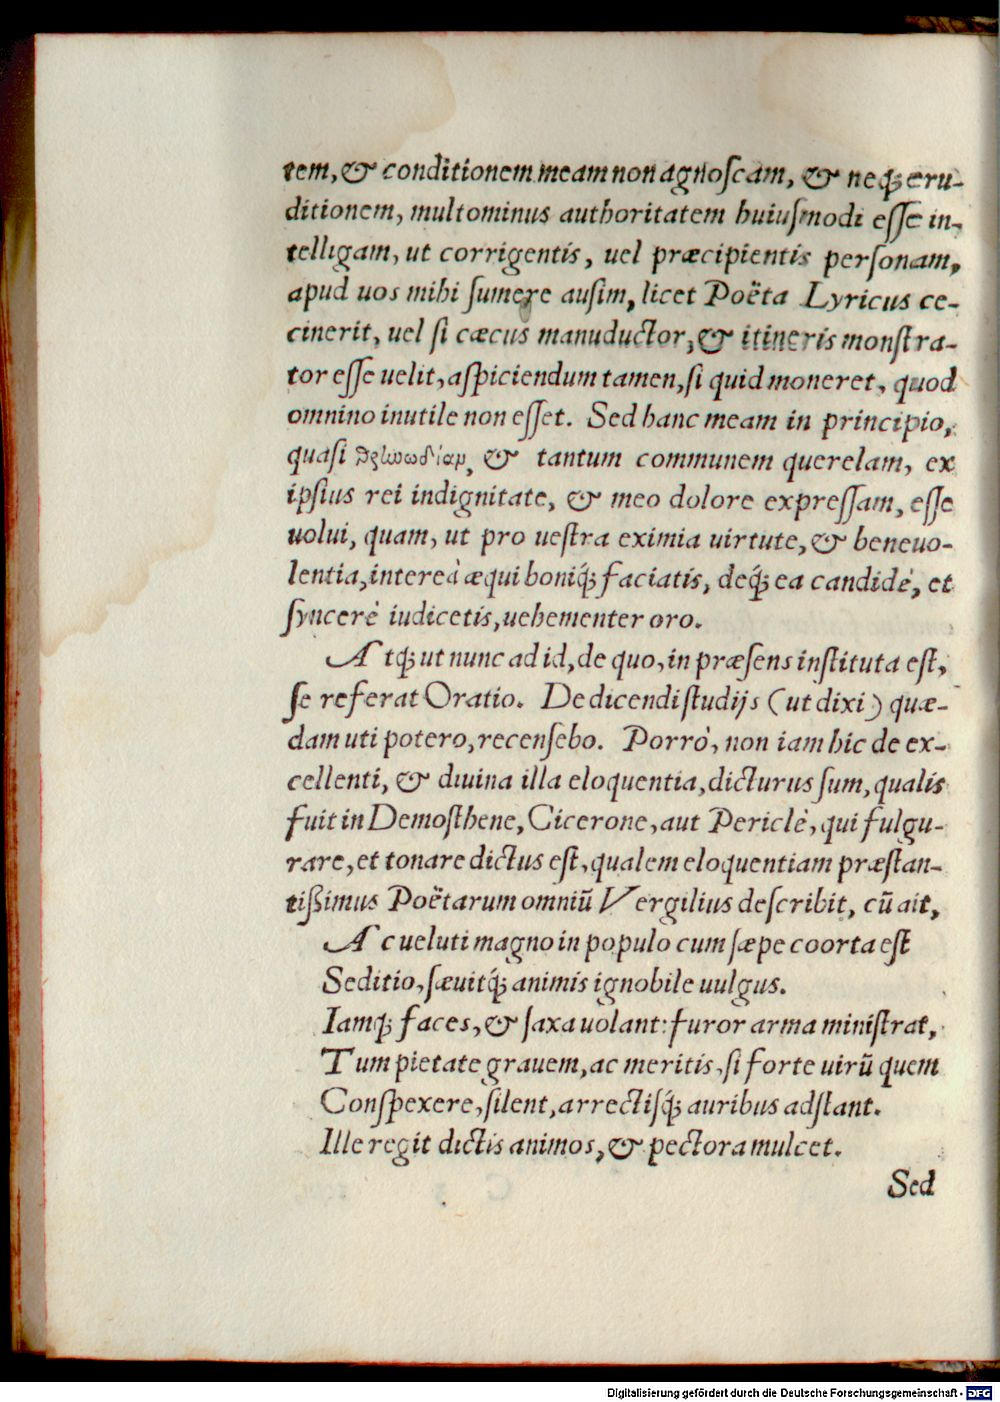 tem, & conditionem meam non agnoſcam, & neqꝫ eru-
ditionem, multominus authoritatem huiuſmodi eſſe in-
telligam, ut corrigentis, uel præcipientis perſonam,
apud uos mihi ſumere auſim, licet Poëta Lyricus ce-
cinerit, uel ſi cæcus manuductor, & itineris monſtra-
tor eſſe uelit, aſpiciendum tamen, ſi quid moneret, quod
omnino inutile non eſſet. Sed hanc meam in principio,
quasi & tantum communem querelam, ex
ipſius rei indignitate, & meo dolore expreſſam, eſſe
uolui, quam, ut pro ueſtra eximia uirtute, & beneuo-
lentia, intereà æqui boniqꝫ faciatis, deqꝫ ea candidè, et
ſyncerè iudicetis, uehementer oro.
Atqꝫ ut nunc ad id, de quo, in præſens inſtituta eſt,
ſe referat Oratio. De dicendi ſtudijs (ut dixi) quæ-
dam uti potero, recenſebo. Porrò, non iam hic de ex-
cellenti, & diuina illa eloquentia, dicturus ſum, qualis
fuit in Demoſthene, Cicerone, aut Periclè, qui fulgu-
rare, et tonare dictus eſt, qualem eloquentiam præſtan-
tißimus Poëtarum omniũ Vergilius deſcribit, cũ ait,
Ac ueluti magno in populo cum ſæpe coorta eſt
Seditio, ſæuitqꝫ animis ignobile uulgus.
Iamqꝫ faces, & ſaxa uolant: furor arma miniſtrat,
Tum pietate grauem, ac meritis, ſi forte uirũ quem
Conſpexere, ſilent, arrectiſqꝫ auribus adſtant.
Ille regit dictis animos, & pectora mulcet.
Sed
Digitalisierung gefördert durch die Deutsche Forschungsgemeinschaft - DFG